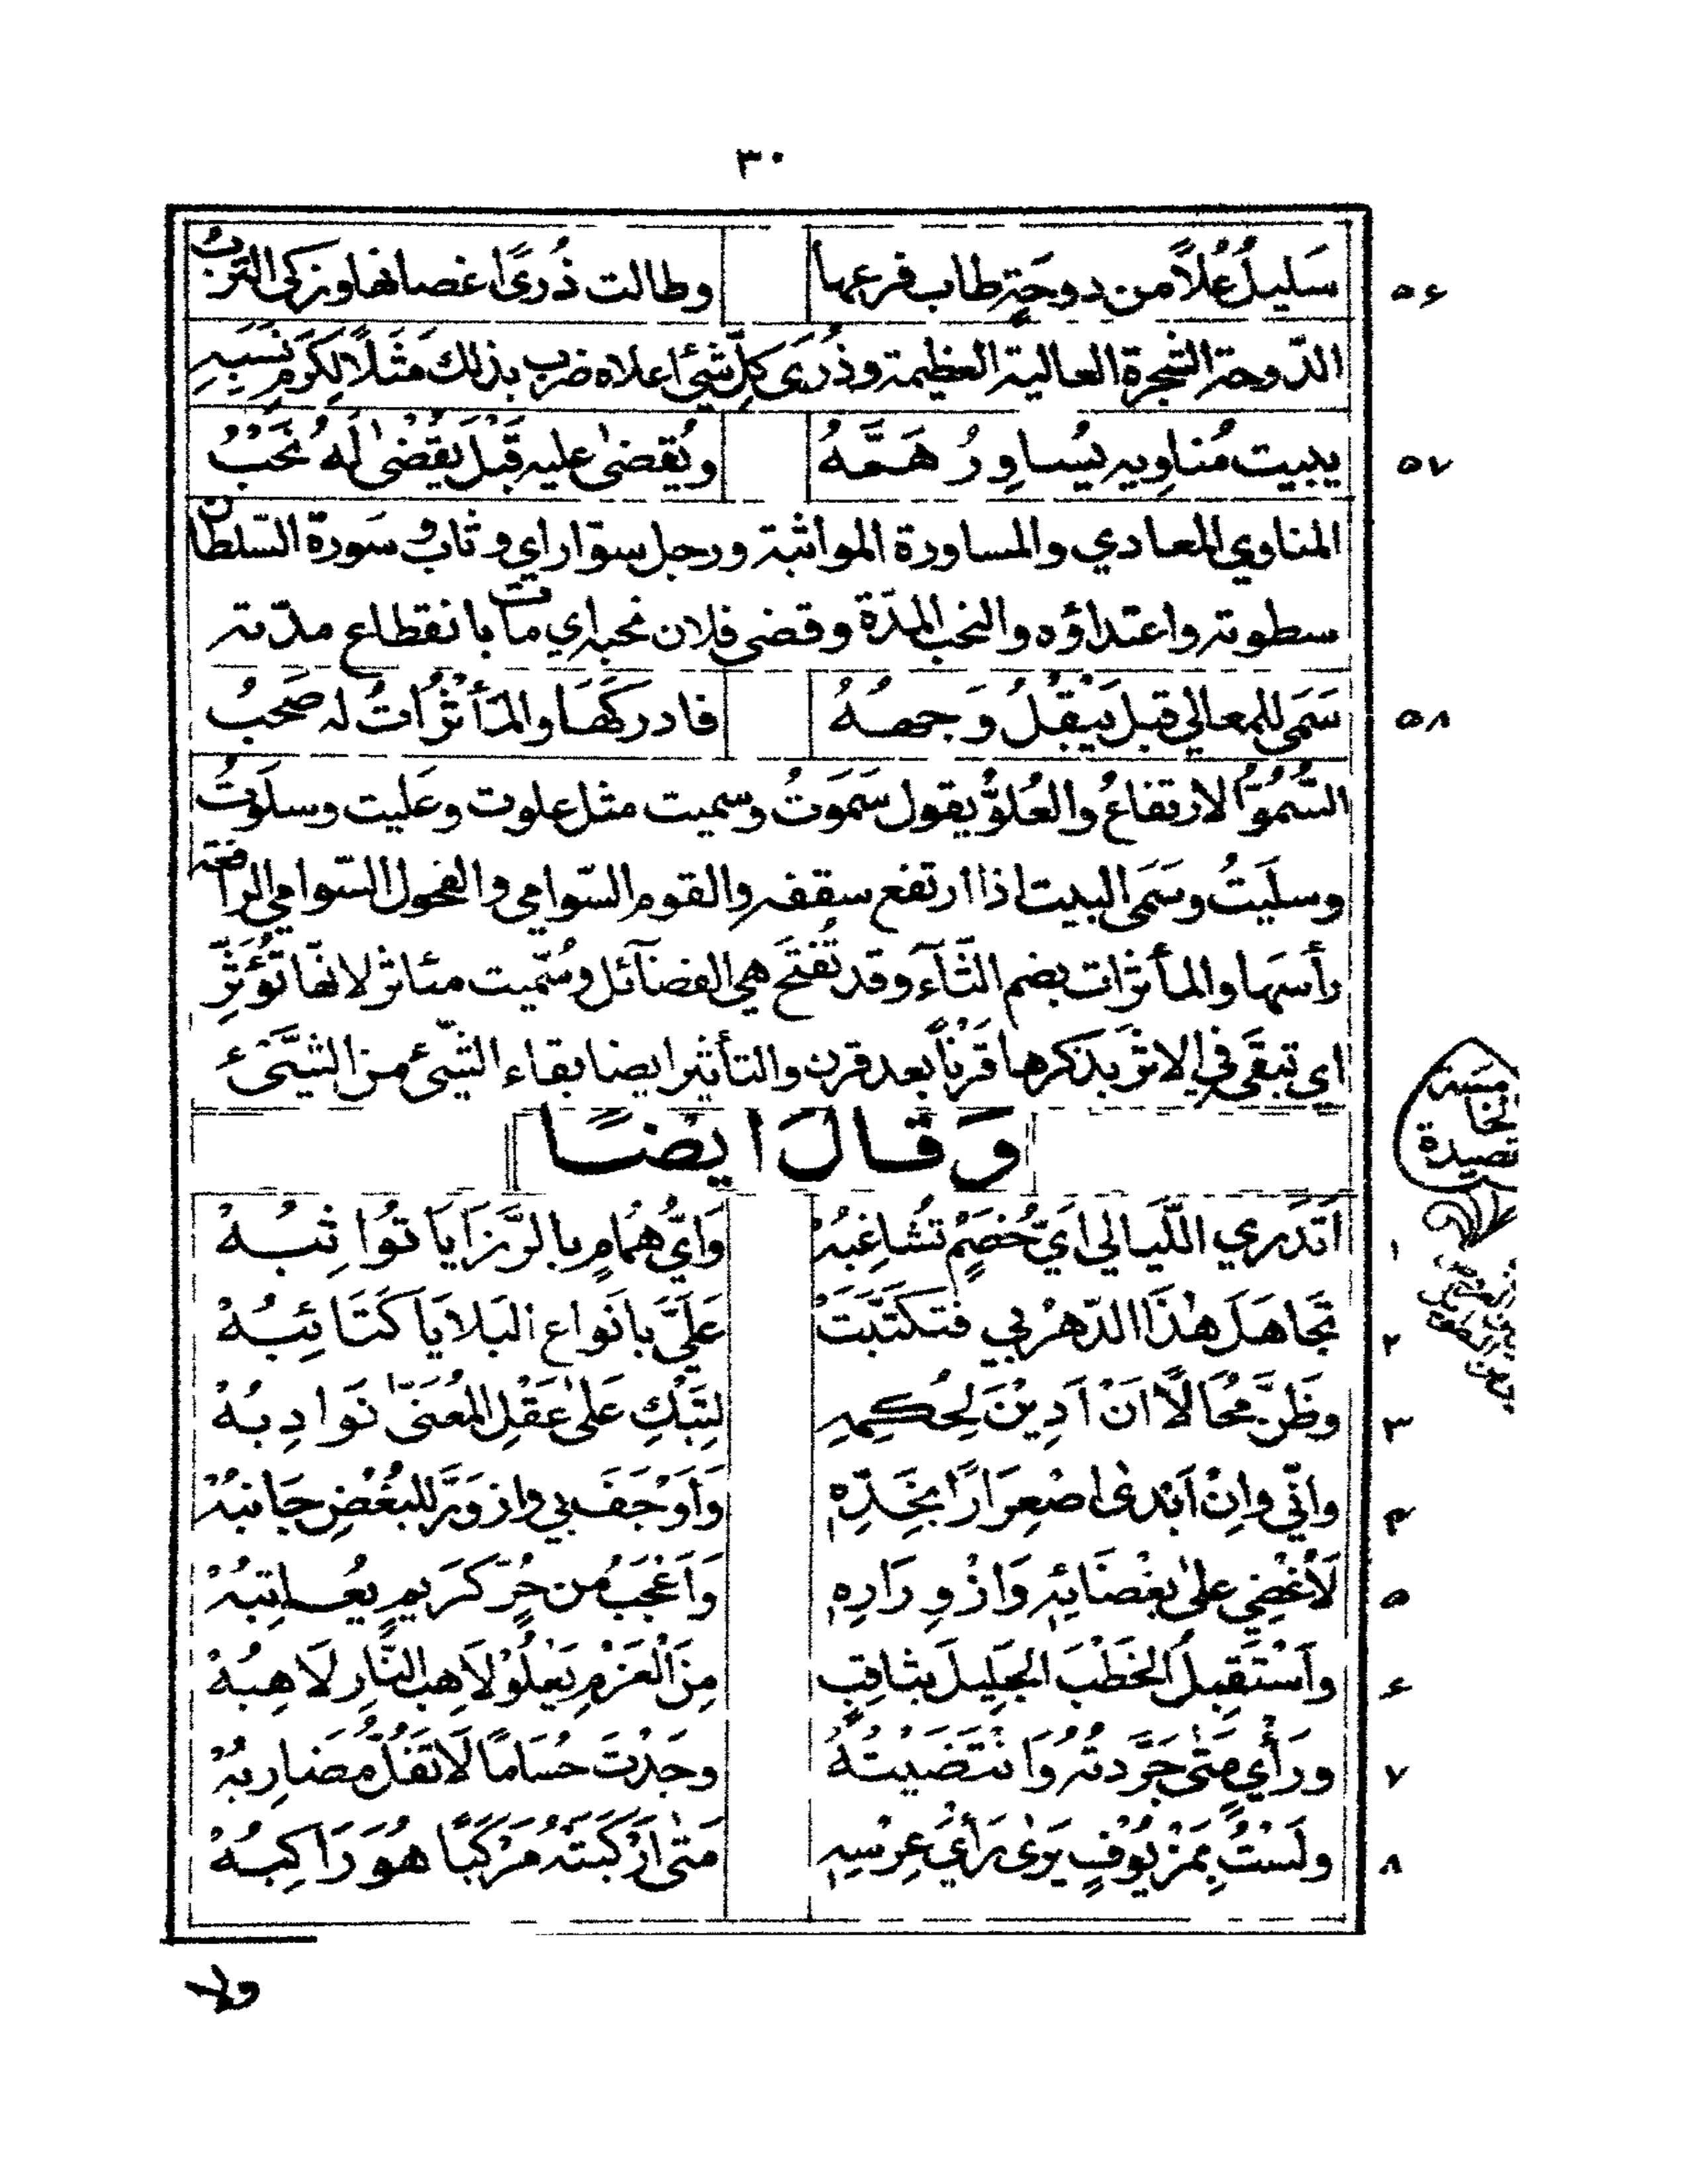 ٣٠
٥٦ سَليلُ عُلًا من دوحَةٍ طاب فرعها وطالت ذُرىً اغصانها وزكى التربُ
الدّوحة الشجرة العالية العظيمة وذُرَى كلِّ شئ اعلاه ضرب بذلك مَثَلًا لِكَرَمِ نَسَبِهِ
٥٧ يبيت مُناوِيه يُساوِرُ هَمَّهُ ويُقضىٰ عليه قَبْلَ يُقْضىٰ لَهُ نَحْبُ
المناوي المعادي والمساورة المواثبة ورجل سوّار اي وثابٌ وسَورة السّلطان
سطوته واعتداؤه والنحب المدّة وقضى فلان نحبه اي مات بانقطاع مدّته
٥٨ سَمَى للمعالي قبل يَبْقُلُ وَجهُهُ فادركَهَا والمَأثُرَاتُ له صَحبُ
السُّمُوُّ الارتفاعُ والعُلوُّ يقول سَمَوتُ وسميت مثل علوت وعَليت وسلَوتُ
وسليَتُ وسَمَى البيت اذا ارتفع سقفه والقوم السّوامي والفحول السّوامي الرافعة
رأسها والمأثرات بضم الثّآء وقد تُفتَح هي الفضآئل وسُمّيت مئاثر لانّها تُؤَثِّر
اي تبقَى في الاثر بذكرها قَرْناً بعد قرن والتأثير ايضا بقاء الشّئ من الشَّئ
وَقَالَ ايضًا
الخامسة
قصيدة
١ اَتَدري اللَّيَالي اَيَّ خَصْمٍ تُشاغِبُهْ وَايُّ هُمَامٍ بالرَّزَايَا تُوَاثِبُهْ
٢ تجَاهَلَ هٰذَا الدّهرُ بي فتكَتَّبَتْ عَليَّ بانَواعِ البَلايَا كَتَائِبُهْ
٣ وظَنَّ مُحَالًا اَنْ اَدِيْنَ لِحُكمِهِ لِتَبْكِ عَلىٰ عَقْلِ المُعَنّىٰ نَوادِبُهْ
٤ وانّي وانْ اَبْدىٰ اصْعِرَارًا بخَدِّهٖ وَاَوْجَفَ بي وازوَرَّ للبُغْضِ جَانبُهْ
٥ لَأُغضِي علىٰ بغْضَائِهٖ وَازْوِرَارِهٖ وَاَعْجَبُ من حُرٍّ كَريمٍ يُعاتِبُهْ
٦ واَسْتَقبِلُ الخَطْبَ الجَلِيلَ بثاقبٍ مِنَ العَزْمِ يَعْلُوْ لاَهِبَ النَّارِ لَاهِبُهْ
٧ ورَأيٍ مَتىٰ جَرَّدتُهُ وَانْتَضَيْتُهُ وجَدْتَ حُسَامًا لَا تُفَلُّ مَضَارِبُهْ
٨ ولَسْتُ بِمَزْيُوْفٍ يَرىٰ رَأيَ عِرْسِهٖ مَتىٰ اَرْكَبَتْهُ مَرْكَبًا هُوَ رَاكِبُهْ
ولا